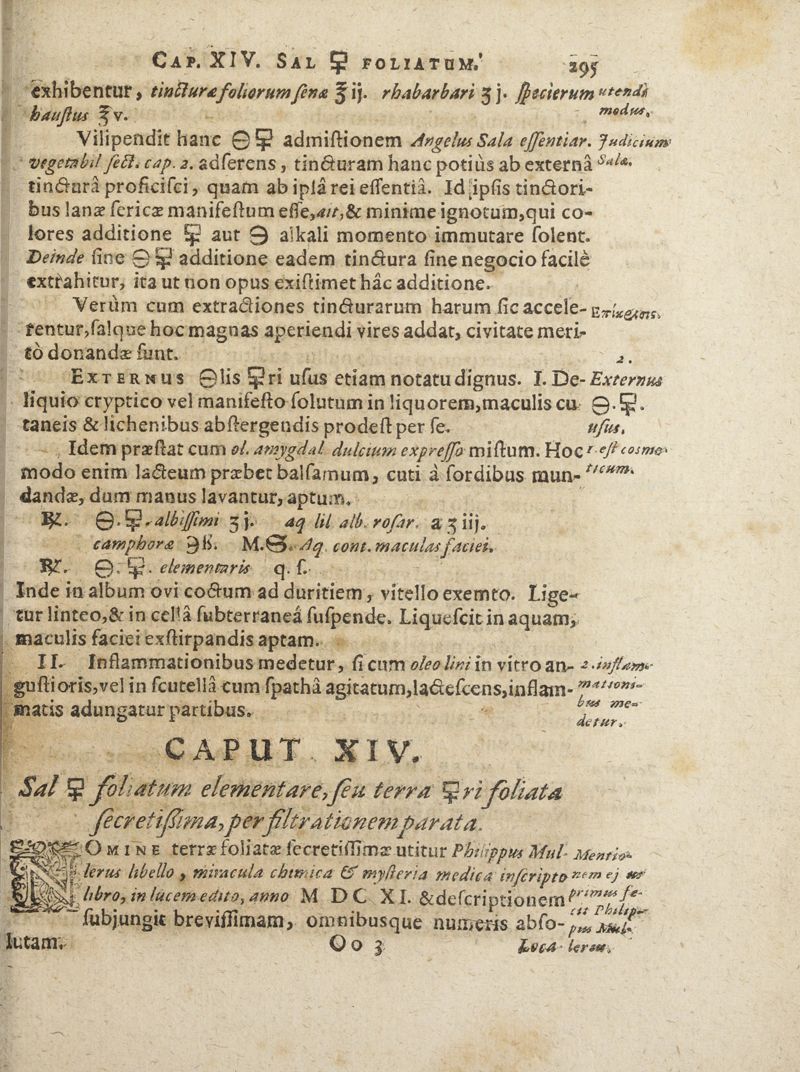 CAP. XIV. SAL 🜿 FOLIATUM. 295
exhibentur, tincturæ foliorum senæ ℥ ij. rhabarbari ʒ j. specierum utendi
haustus ℥ v. modus.
Vilipendit hanc 🜔🜿 admistionem Angelus Sala essentiar. Judicium
vegetabil sect. cap. 2. adferens, tincturam hanc potiùs ab externâ Salæ.
tincturâ proficisci, quam ab ipsâ rei essentiâ. Id ipsis tinctori-
bus lanæ sericæ manifestum esse, ait, & minime ignotum, qui co-
lores additione 🜿 aut 🜔 alkali momento immutare solent.
Deinde sine 🜔🜿 additione eadem tinctura sine negocio facilè
extrahitur, ita ut non opus existimet hâc additione.
Verùm cum extractiones tincturarum harum sic accele- Ἐπίκρισις.
rentur, salque hoc magnas aperiendi vires addat, civitate meri-
tò donandæ sunt. 2.
EXTERNUS 🜔lis 🜿ri usus etiam notatu dignus. I. De- Externus
liquio cryptico vel manifesto solutum in liquorem, maculis cu- 🜔.🜿.
taneis & lichenibus abstergendis prodest per se. usus.
Idem præstat cum ol. amygdal dulcium expresso mistum. Hoc 1 est cosme-
modo enim lacteum præbet balsamum, cuti à sordibus mun- ticum.
dandæ, dum manus lavantur, aptum.
℞. 🜔.🜿. albissimi ʒ j. aq lil alb. rosar. a ʒ iij.
camphoræ ℈ ß. M.🜔. Aq. cont. maculas faciei.
℞. 🜔.🜿. elementaris q. s.
Inde in album ovi coctum ad duritiem, vitello exemto. Lige-
tur linteo, & in cellâ subterraneâ suspende. Liquescit in aquam,
maculis faciei exstirpandis aptam.
II. Inflammationibus medetur, si cum oleo lini in vitro an- 2. inflam-
gusti oris, vel in scutellâ cum spathâ agitatum, lactescens, inflam- mationi-
matis adungatur partibus. bus me-
detur.
CAPUT XIV.
Sal 🜿 foliatum elementare, seu terra 🜿ri foliata
secretissima, per filtrationem parata.
NOMINE terræ foliatæ secretissimæ utitur Philippus Mul- Mentio-
lerus libello, miracula chimica & mysteria medica inscripto nem ej us
libro, in lucem edito, anno M DC XI. & descriptionem primus fe-
subjungit brevissimam, omnibusque numeris abso- cit Philip-
pus Mul-
lutam. Oo 3 Loca- lerus.